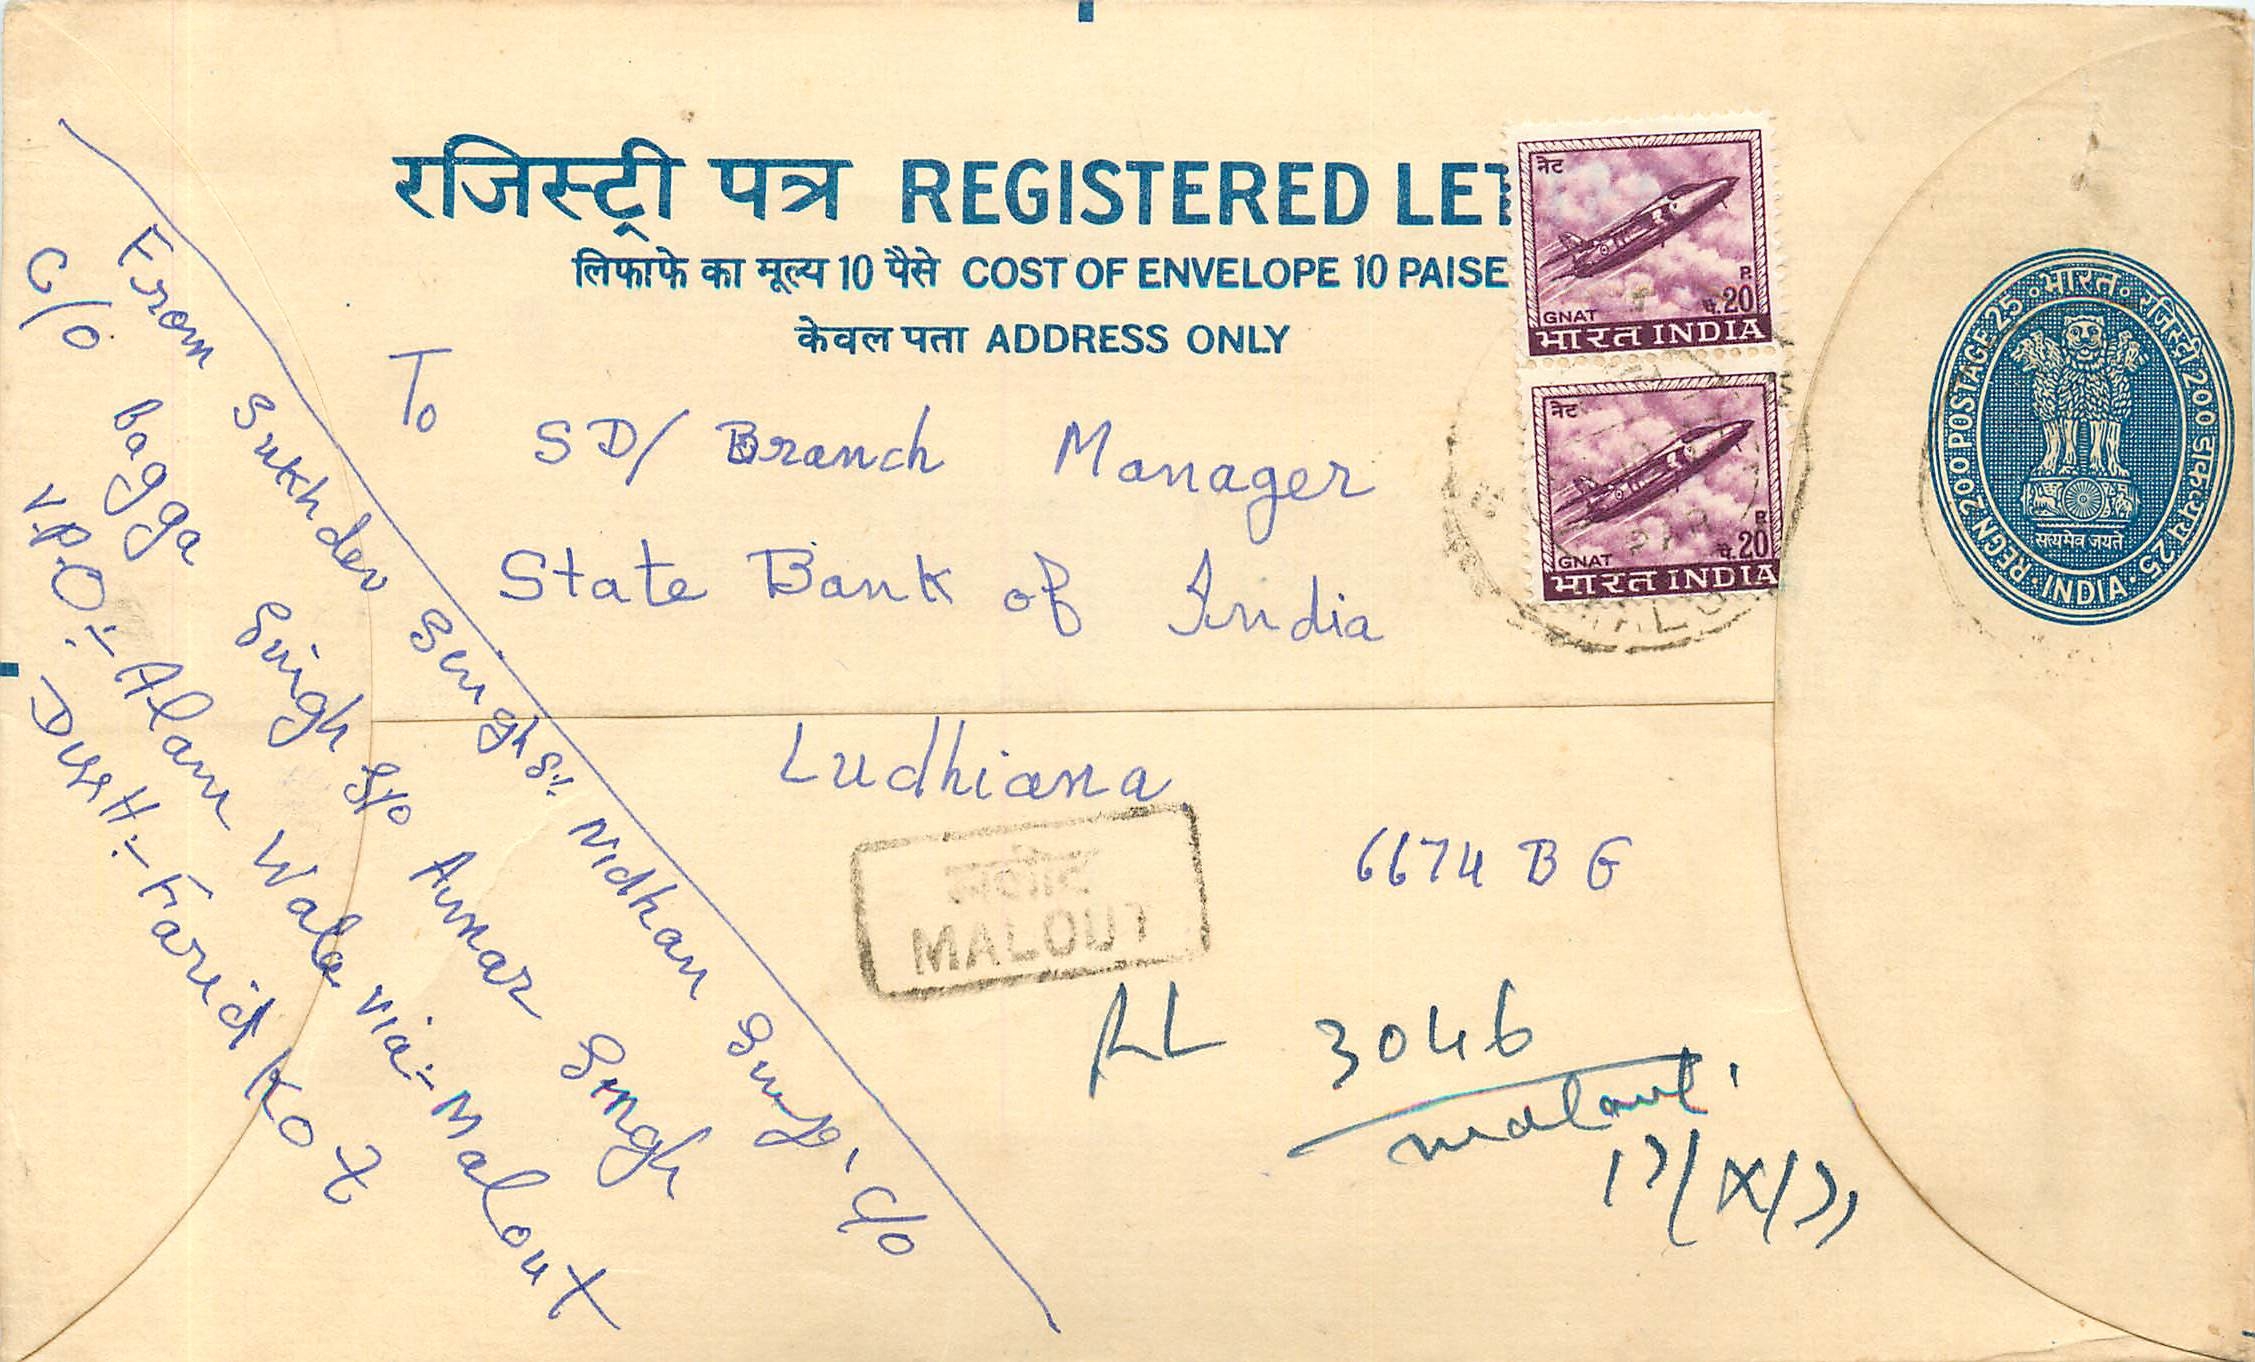 रजिस्ट्री पत्र REGISTERED LET
लिफाफे का मूल्य 10 पैसे COST OF ENVELOPE 10 PAISE
केवल पता ADDRESS ONLY
नेट
P.
पै.20
GNAT
भारत INDIA
नेट
P.
पै.20
GNAT
भारत INDIA
• भारत • रजिस्ट्री 200 डाकव्यय 25 • INDIA • REGN 200 POSTAGE 25
सत्यमेव जयते
To
SD/ Branch Manager
State Bank of India
Ludhiana
MALOUT
6674 B G
RL 3046
Malout
17/X/77
From Sukhdev Singh S/o Nidhan Singh, C/o
C/o Bagga Singh S/o Amar Singh
V.P.O:- Alam Wala via:- Malout
Distt:- Farid Kot